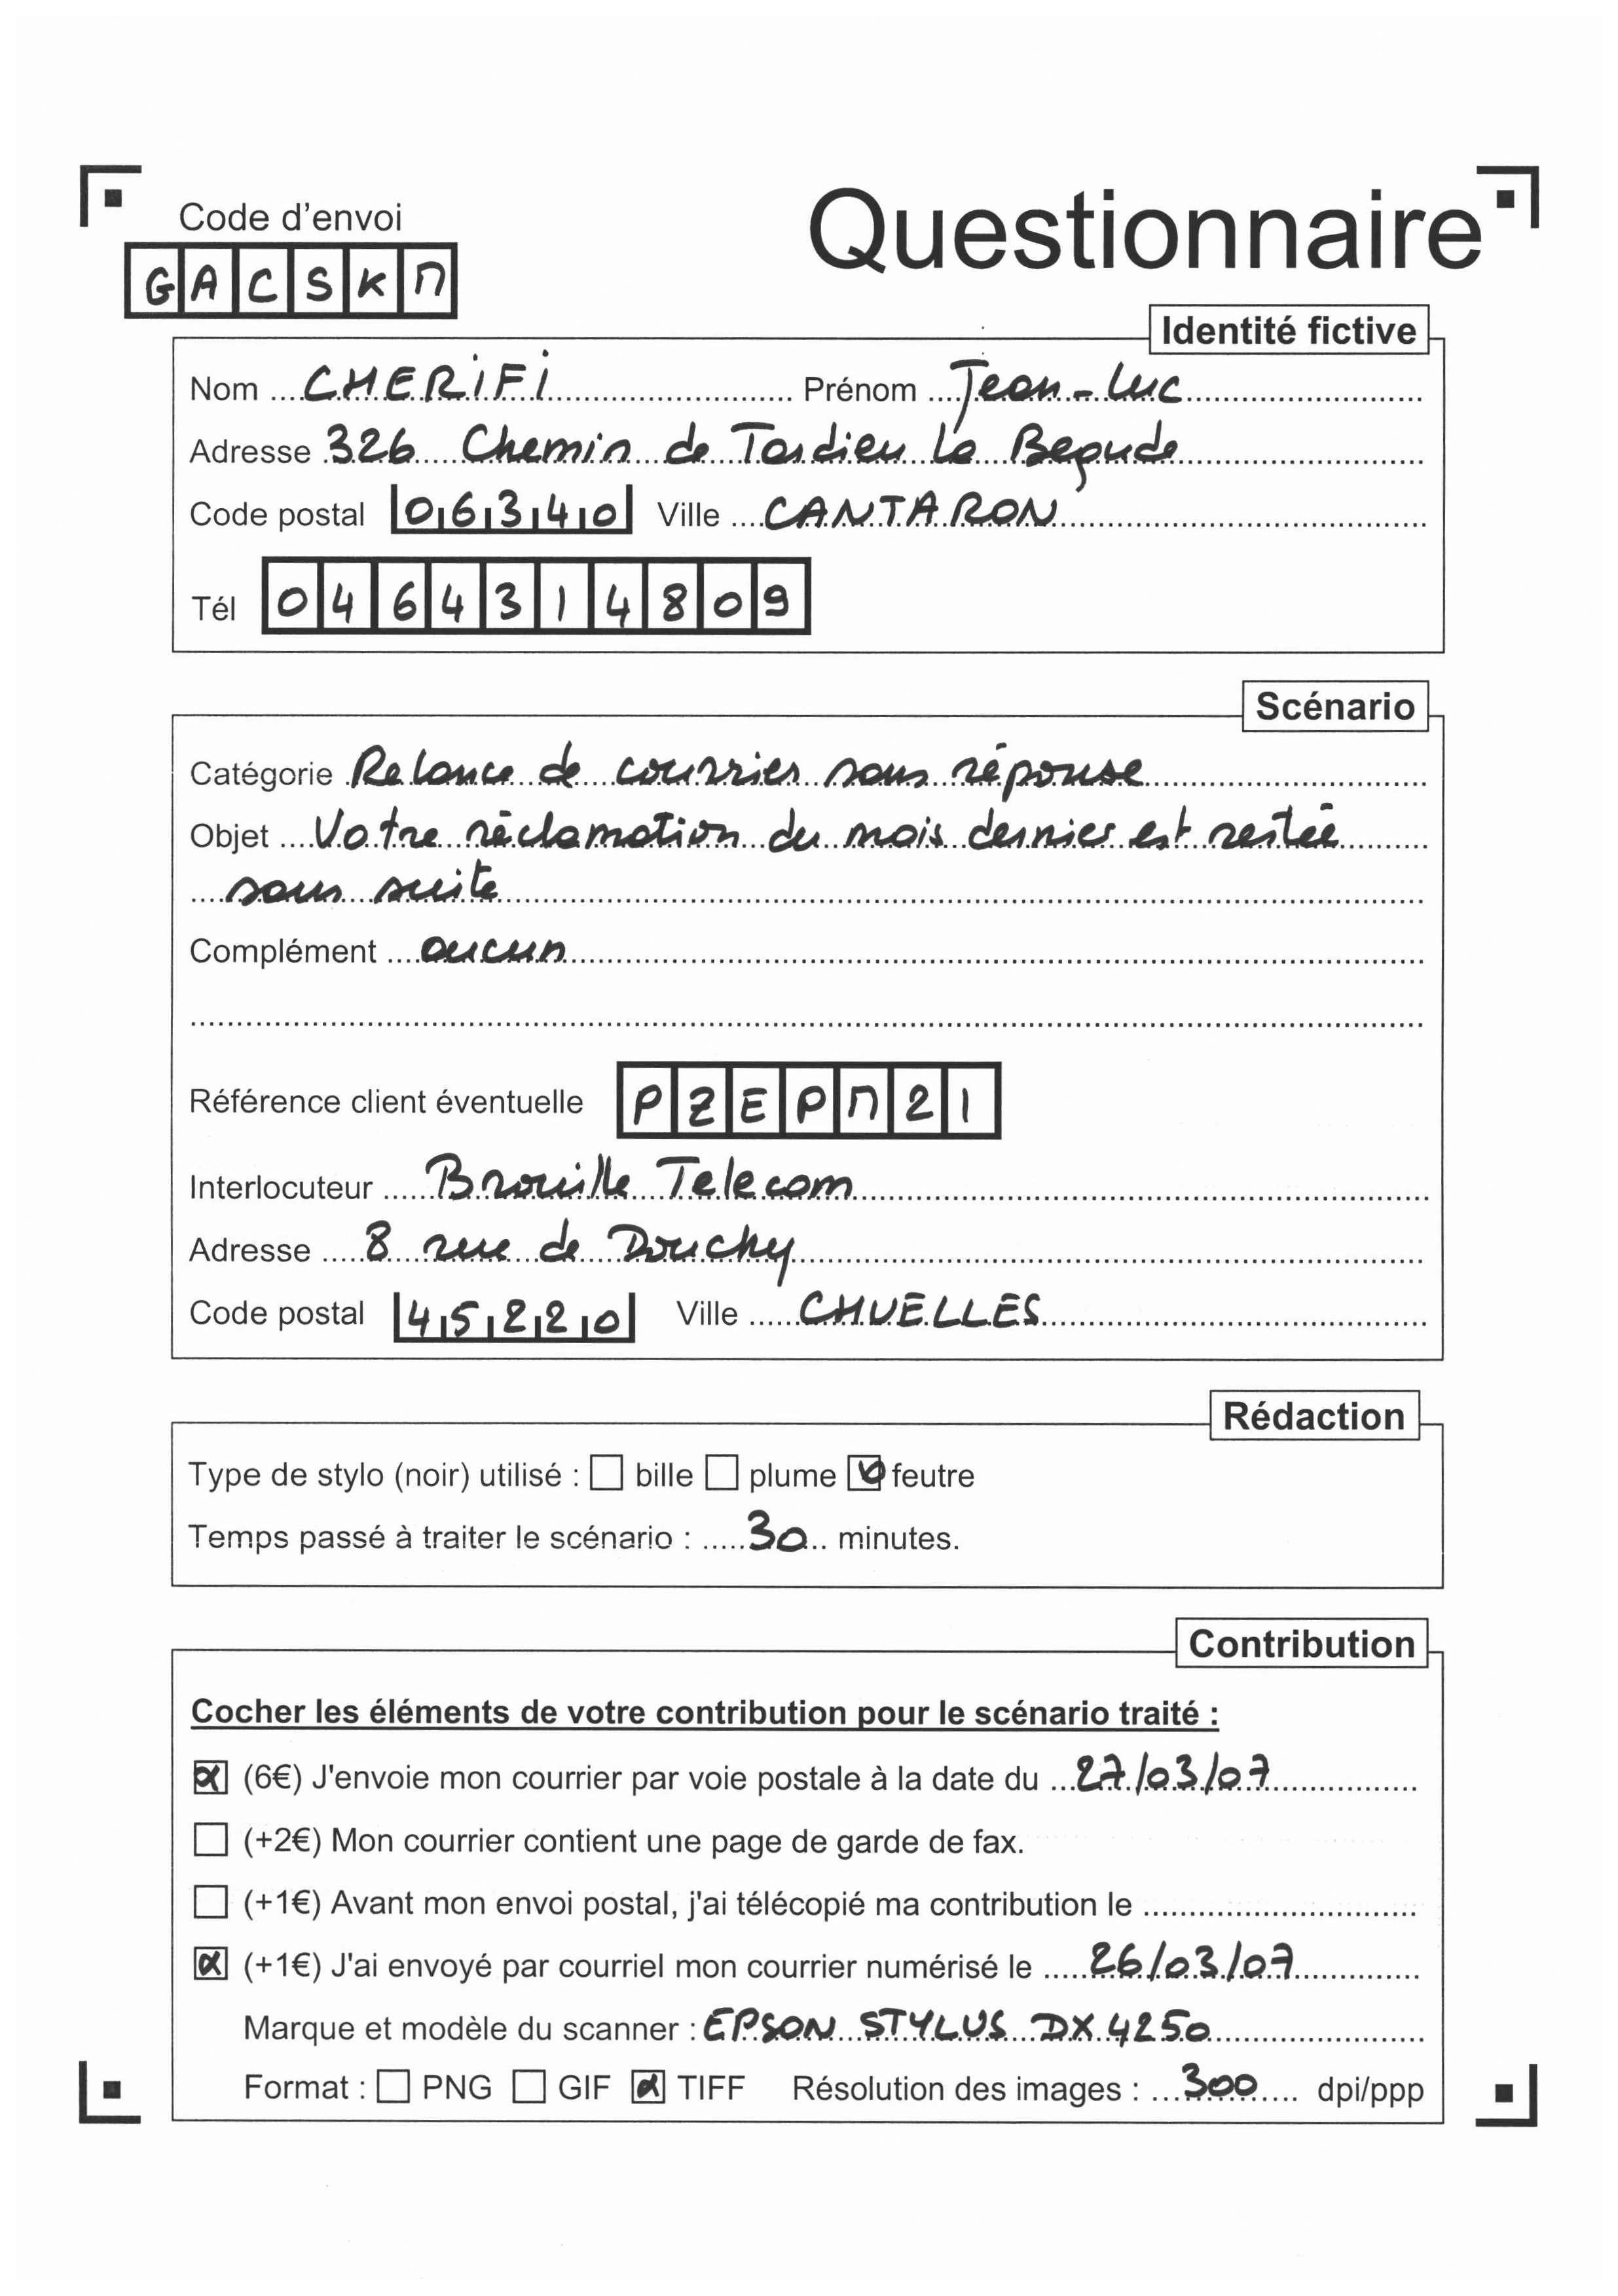 Code d'envoi
Questionnaire
GACSKM
Identité fictive
Nom CHERiFi Prénom Jean-Luc
Adresse 326 Chemin de Tardieu La Begude
Code postal 06340 Ville CANTARON
Tél 0464314809
Scénario
Catégorie Relance de courrier sans réponse
Objet Votre réclamation du mois dernier est restée
sans suite
Complément aucun
Référence client éventuelle PZEPM21
Interlocuteur Brouille Telecom
Adresse 8 rue de Douchy
Code postal 45220 Ville CHUELLES
Rédaction
Type de stylo (noir) utilisé : bille plume feutre
Temps passé à traiter le scénario : 30 minutes.
Contribution
Cocher les éléments de votre contribution pour le scénario traité :
(6€) J'envoie mon courrier par voie postale à la date du 27/03/07
(+2€) Mon courrier contient une page de garde de fax.
(+1€) Avant mon envoi postal, j'ai télécopié ma contribution le
(+1€) J'ai envoyé par courriel mon courrier numérisé le 26/03/07
Marque et modèle du scanner : EPSON STYLUS DX 4250
Format : PNG GIF TIFF Résolution des images : 300 dpi/ppp